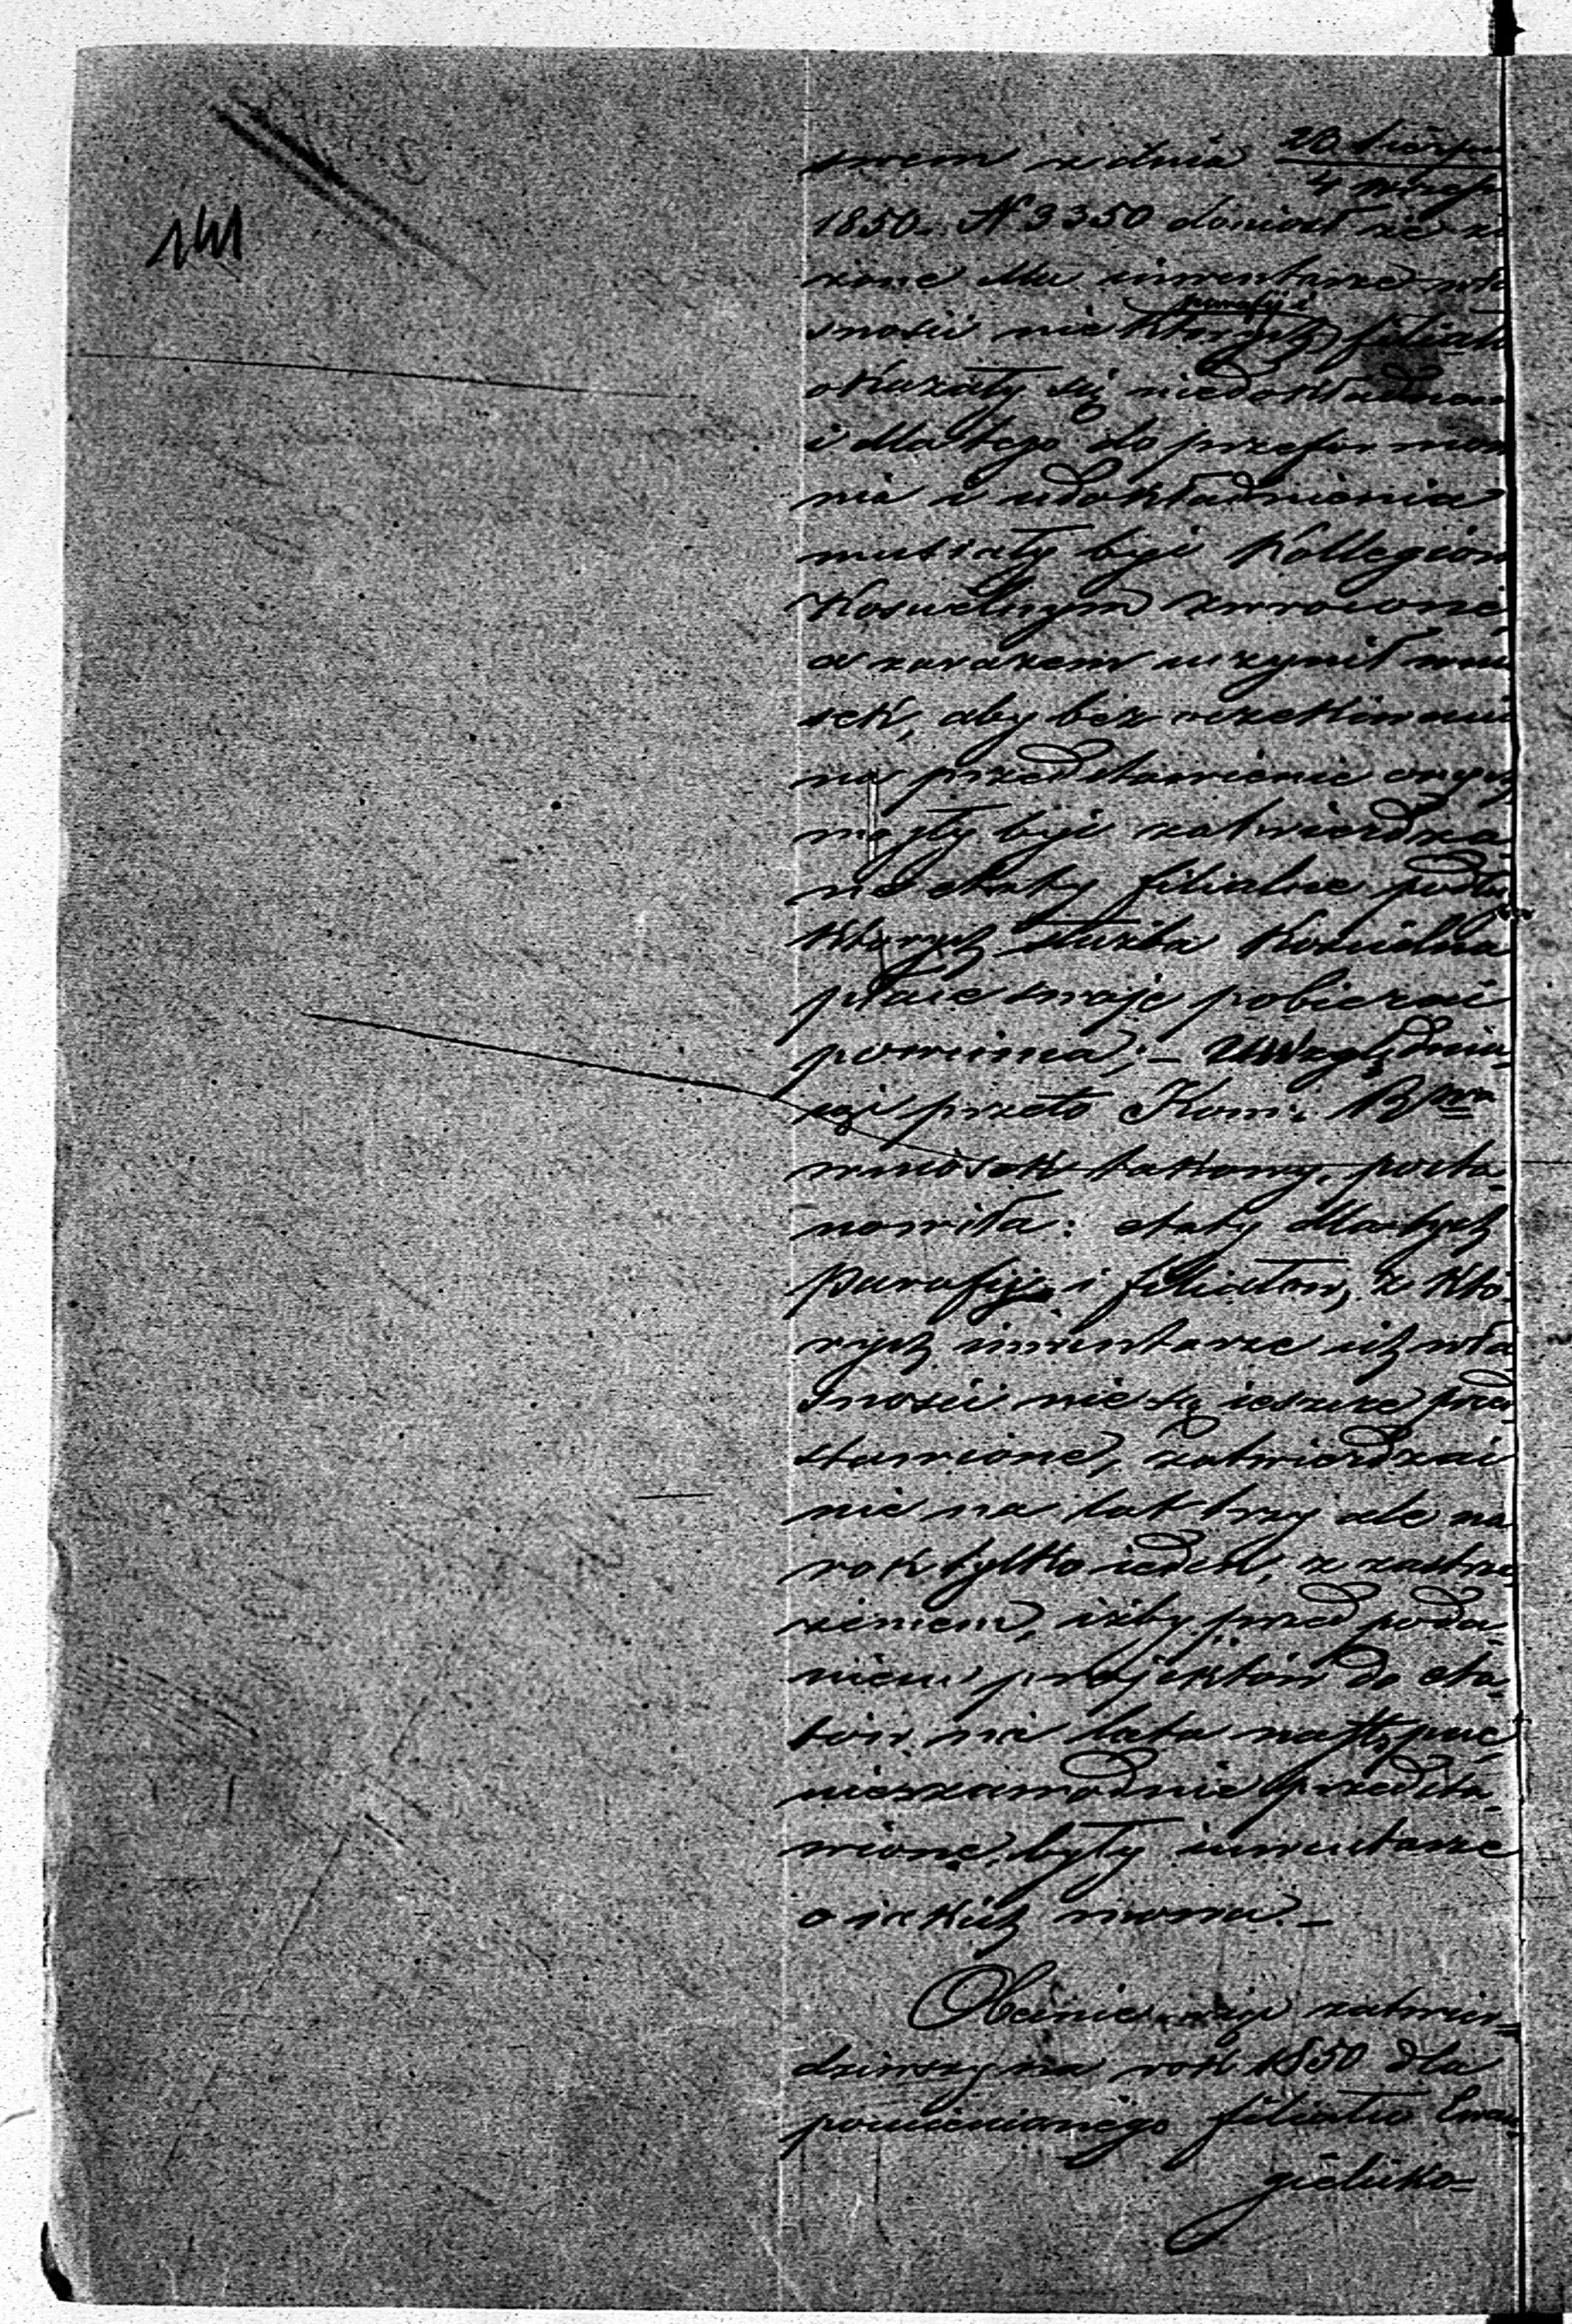 swem z dnia 23 Sierpn
4 Wrześ
1850. N 3350 doniósł że z
żone Mu inwentarze wła
parafji i
sności nie których filiałó
okazały się niedokładnem
i dla tego do przeformowa
nia i udokładnienia
musiały być Kollegiom
Kościelnym zwrócone,
a zarazem uczynił wnio
sek, aby bez oczekiwania
na przedstawienie onych
mogły być zatwierdza
ne etaty filialne podłu
których służba Kościelna
płace swoje pobierać
powinna; – Uwzględnia
jąc przeto Kom: R
wniosek takowy, posta
nowiła: etaty dla tych
Parafij i filiałów, z któ
rych inwentarze ich wła
sności nie są ieszcze przed
stawione, zatwierdzać
nie na lat trzy ale na
rok tylko ieden, z zastrze
żeniem, iżby przed poda
niem projektów do eta
tów na lata następne,
niezawodnie przedsta
wione były inwentarze
o iakich mowa. –
Obecnie więc zatwier=
dziwszy na rok 1850 dla
pomienionego filiału Ewan
gielicko=